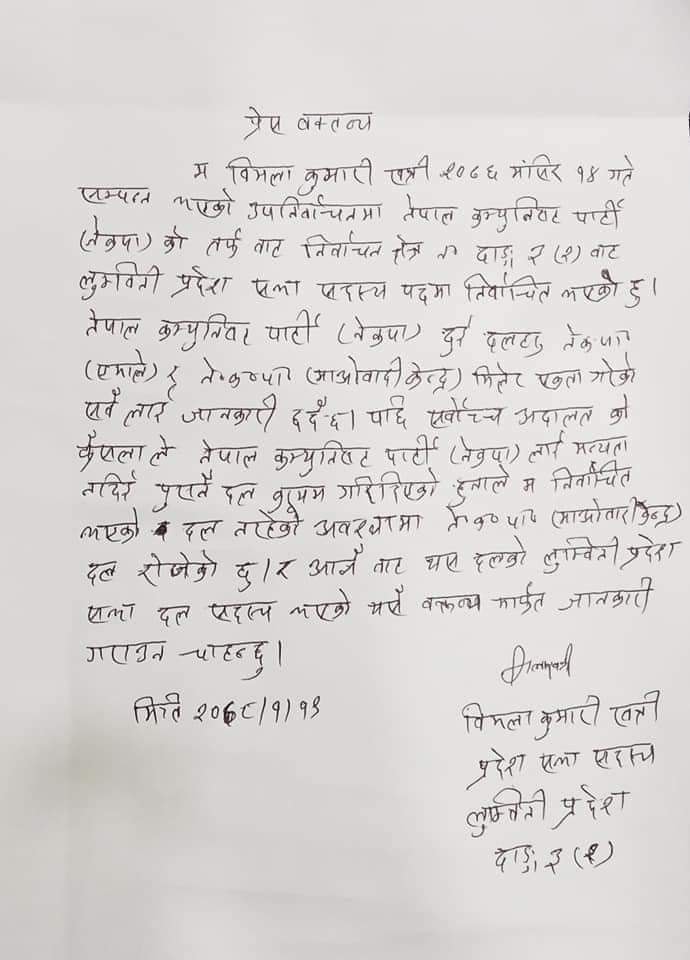 प्रेस वक्तव्य
म विमला कुमारी खत्री २०७६ मंसिर १४ गते
सम्पन्न भएको उपनिर्वाचनमा नेपाल कम्युनिष्ट पार्टी
(नेकपा) को तर्फ बाट निर्वाचन क्षेत्र नं दाङ्ग ३ (२) बाट
लुम्विनी प्रदेश सभा सदस्य पदमा निर्वाचित भएको हु।
नेपाल कम्युनिष्ट पार्टी (नेकपा) दुई दलहरु ने.क.पा
(एमाले) र ने.क.पा (माओवादी केन्द्र) मिलेर एकता गरेको
सबै लाई जानकारी छदैछ। पछि सर्वोच्च अदालत को
फैसला ले नेपाल कम्युनिष्ट पार्टी (नेकपा) लाई मान्यता
नदिई पुरानै दल कायम गरिदिएको हुनाले म निर्वाचित
भएको दल नरहेको अवस्थामा ने.क.पा (माओवादी केन्द्र)
दल रोजेको छु। र आजै बाट यस दलको लुम्विनी प्रदेश
सभा दल सदस्य भएको यसै वक्तव्य मार्फत जानकारी
गराउन चाहन्छु।
मिति २०७८/१/१३
विमला कुमारी खत्री
प्रदेश सभा सदस्य
लुम्विनी प्रदेश
दाङ्ग ३ (२)